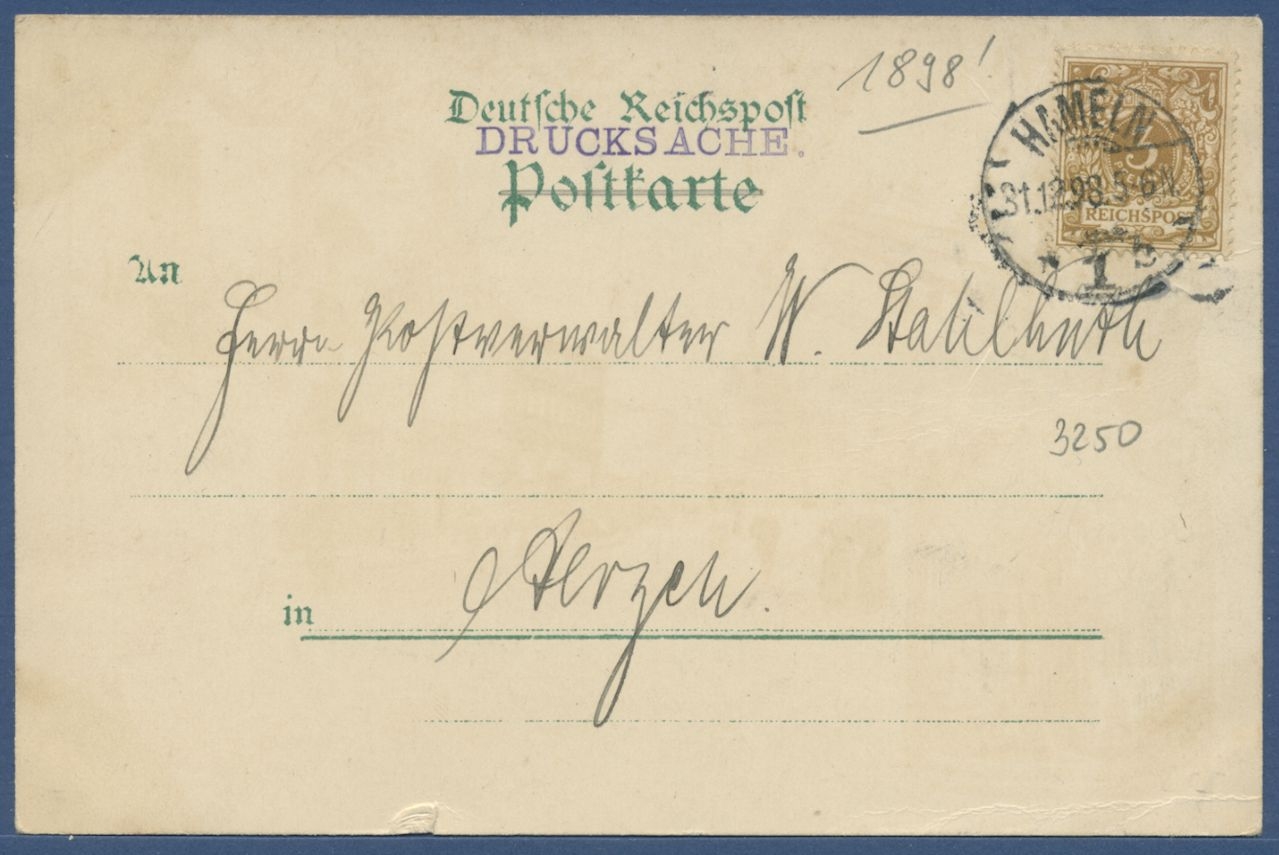 1898!
Deutsche Reichspost
DRUCKSACHE.
Postkarte
HAMELN
31.12.98. 5-6 N.
* 1 b
3
PFENNIG
REICHSPOST
An
Herrn Postverwalter W. Stahlhuth
3250
in Aerzen.